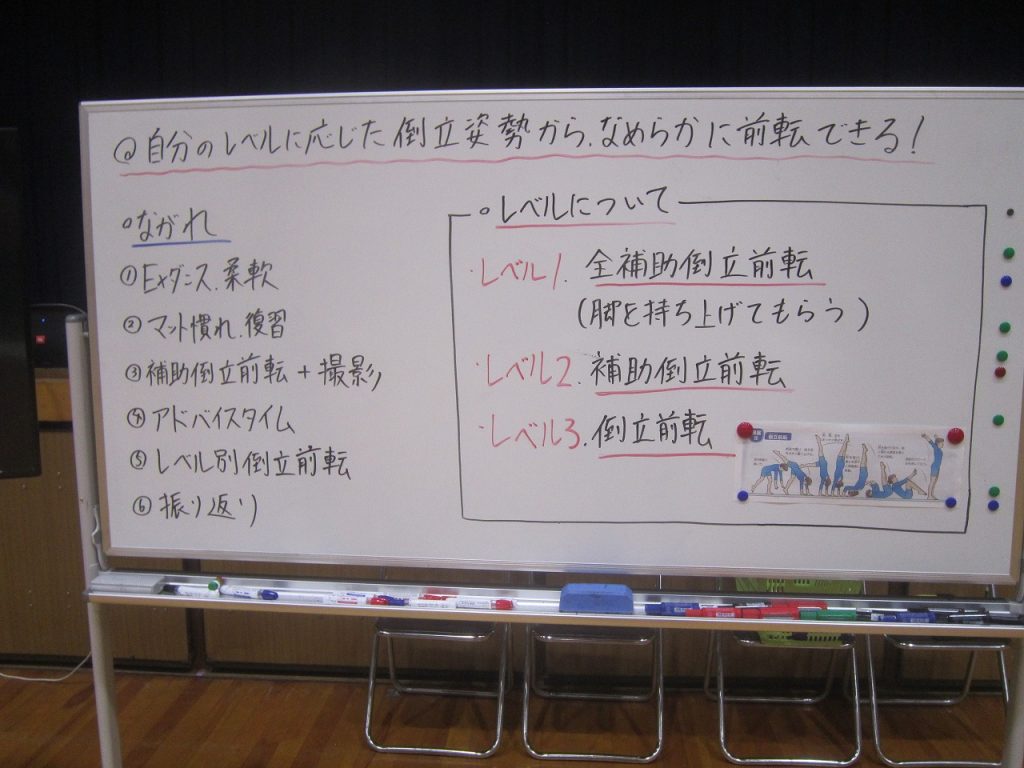 @自分のレベルに応じた倒立姿勢から、なめらかに前転できる!
○ながれ
①Exダンス、柔軟
②マット慣れ、復習
③補助倒立前転+撮影
④アドバイスタイム
⑤レベル別倒立前転
⑥振り返り
○レベルについて
・レベル1. 全補助倒立前転
(脚を持ち上げてもらう)
・レベル2. 補助倒立前転
・レベル3. 倒立前転
倒立前転